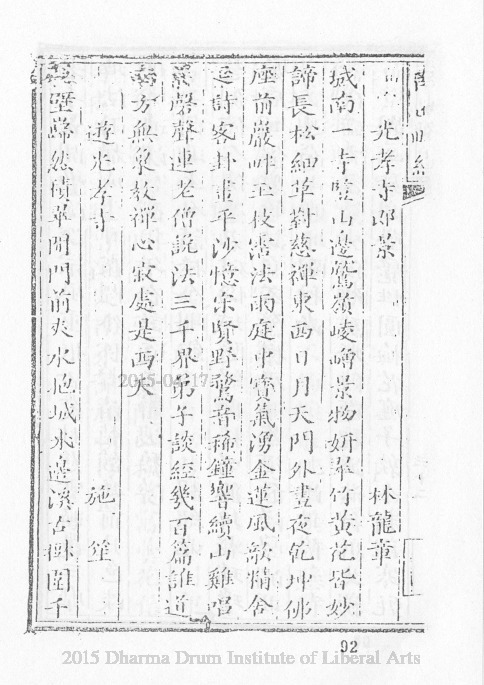 光孝寺即景 林龍章
城南一寺暨山邊鷲嶺崚嶒景物妍翠竹黃花皆妙
諦長松細草對慈禪東西日月天門外晝夜乾坤佛
座前巖畔玉枝霑法雨庭中寶氣湧金蓮風敲精舍
詩客卦畫平沙憶宗賢野鶩音稀鐘響續山雞唱
罄聲連老僧說法三千界弟子談經幾百篇誰道
方無眾教禪心寂處是西天
遊光孝寺 施筀
壁巋然積翠間門前夾水抱城水邊溪古樹圍千
92
2015-04-17
2015 Dharma Drum Institute of Liberal Arts